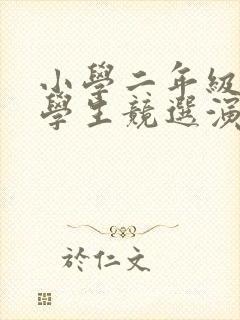 小學二年級
學生競選演
於仁文